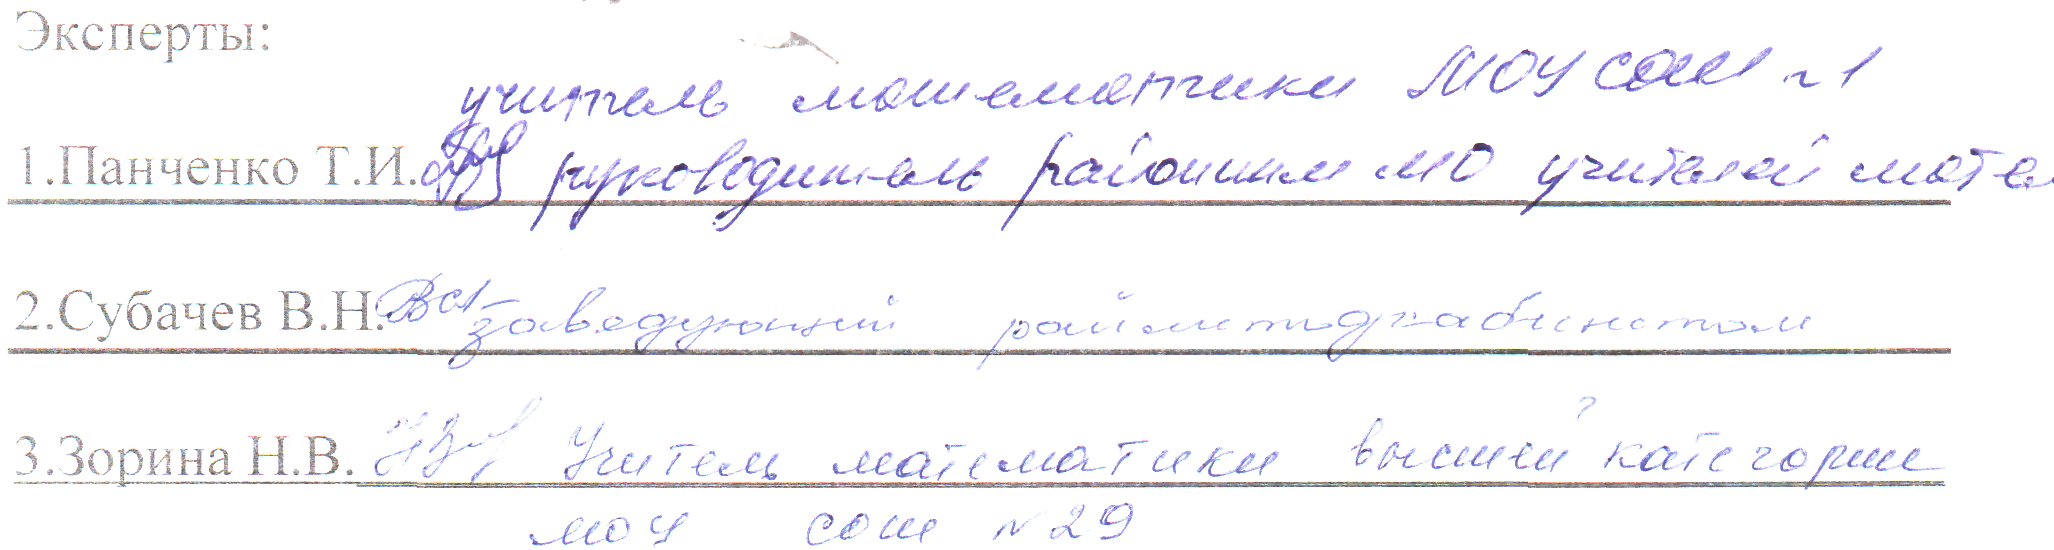 Эксперты:
учитель математики МОУ СОШ №1
1.Панченко Т.И. руководитель районным МО учителей матем
2.Субачев В.Н. заведующий райметодкабинетом
3.Зорина Н.В. Учитель математики высшей категории
МОУ СОШ №29